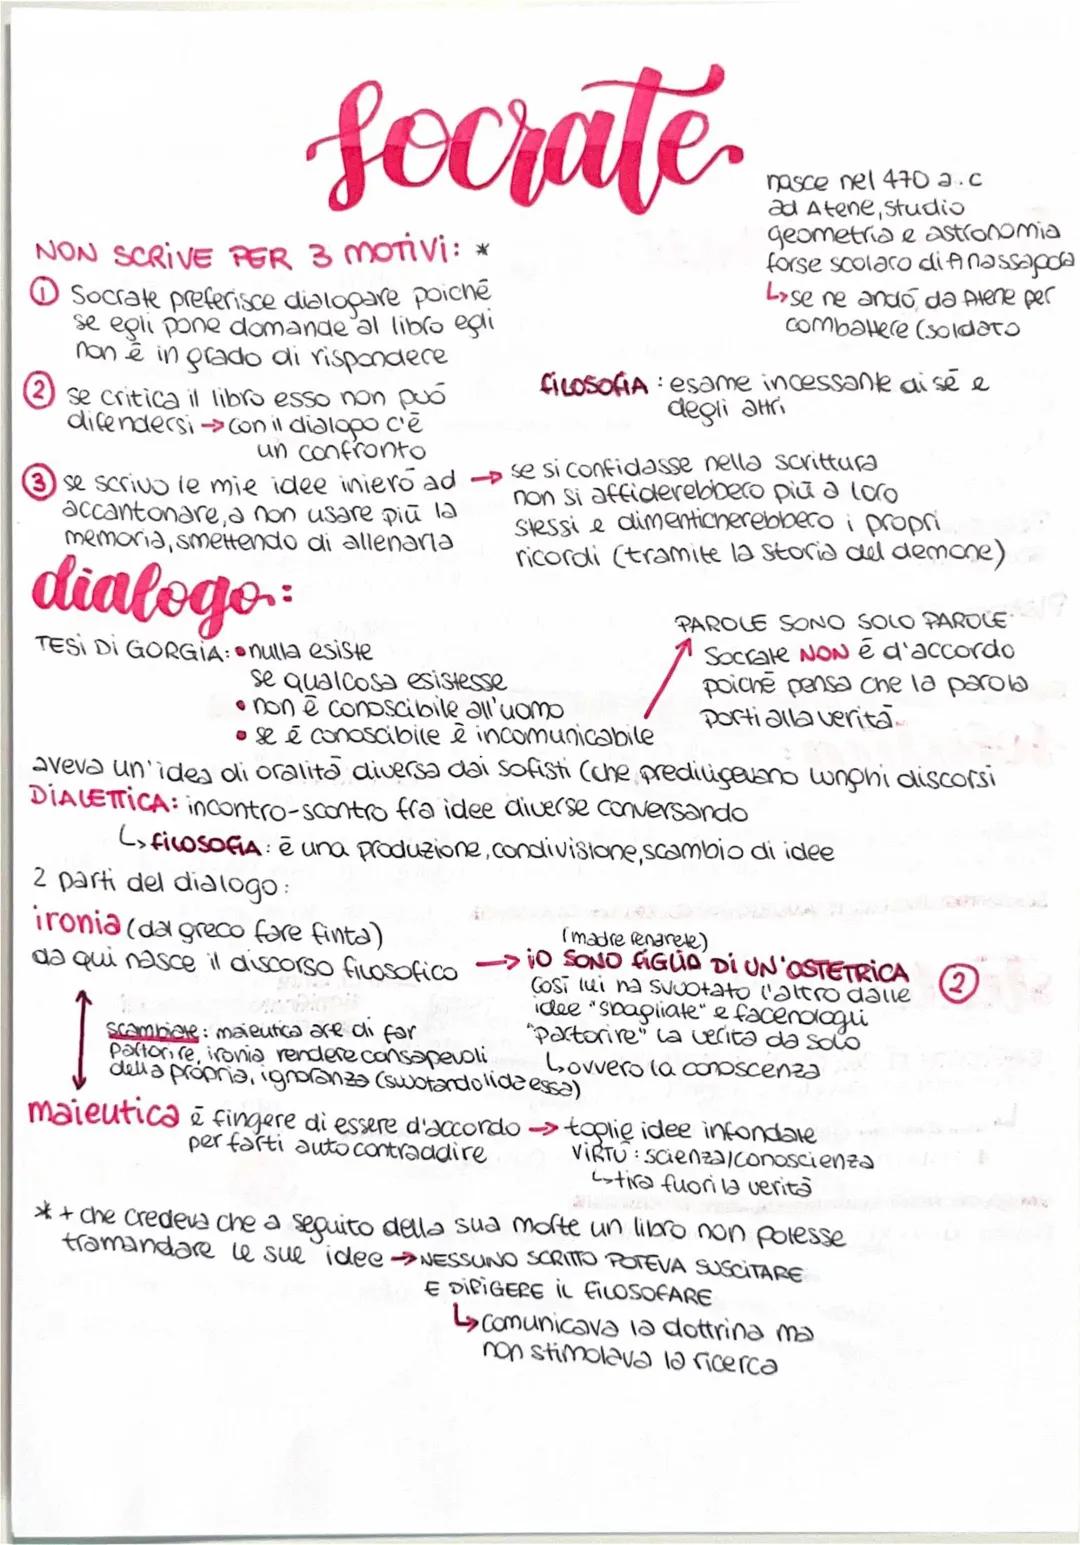 Socrate
nasce nel 470 a.c
ad Atene, studio
geometria e astronomia
forse scolaro di Anassagora
↳ se ne andó, da Atene per
combattere (soldato
NON SCRIVE PER 3 MOTIVI: *
① Socrate preferisce dialogare poiché
se egli pone domande al libro egli
non é in grado di rispondere
② se critica il libro esso non puó
difendersi → con il dialogo c'é
un confronto
FILOSOFIA : esame incessante di sé e
degli altri
③ se scrivo le mie idee inieró ad →
accantonare, a non usare piú la
memoria, smettendo di allenarla
se si confidasse nella scrittura
non si affiderebbero piú a loro
stessi e dimenticherebbero i propri
ricordi (tramite la storia del demone)
dialogo:
TESI DI GORGIA: • nulla esiste
se qualcosa esistesse
• non é conoscibile all'uomo
• se é conoscibile é incomunicabile
PAROLE SONO SOLO PAROLE
Socrate NON é d'accordo
poiché pensa che la parola
porti alla veritá
aveva un'idea di oralitá diversa dai sofisti (che prediligevano lunghi discorsi
DIALETTICA: incontro-scontro fra idee diverse conversando
↳ FILOSOFIA: é una produzione, condivisione, scambio di idee
2 parti del dialogo:
ironia (dal greco fare finta)
da qui nasce il discorso filosofico →
(madre Fenarete)
iO SONO FiGLiO Di UN'OSTETRICA ②
Cosí lui ha svuotato l'altro dalle
idee "sbagliate" e facendogli
"partorire" la veritá da solo
↳ ovvero la conoscenza
scambiate: maieutica arte di far
partorire, ironia rendere consapevoli
della propria, ignoranza (svuotando l'idea essa)
maieutica é fingere di essere d'accordo → toglie idee infondate
per farti auto contraddire
VIRTÚ: scienza/conoscienza
↳ tira fuori la veritá
* + che credeva che a seguito della sua morte un libro non potesse
tramandare le sue idee → NESSUNO SCRITTO POTEVA SUSCITARE
E DIRIGERE IL FILOSOFARE
↳ comunicava la dottrina ma
non stimolava la ricerca